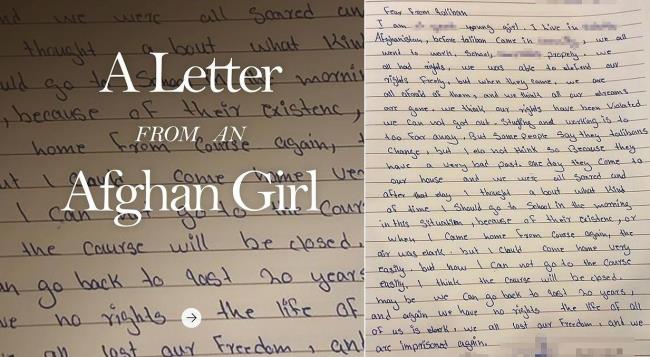 nd we were all scared an
thought a bout what kin
uld go to School in the mornin
, because of their existenc,
home from course again, t
ut I Could come home ver
I can not go to the Cours
the course will be closed.
an go back to last 20 years
ve no rights the life of
all lost our Freedom, and
A Letter
FROM AN
Afghan Girl
Fear From taliban
I am young girl. I live in
Afghanistan, before taliban came in we all
went to work, school, propely. we
all had rights, we was able to defend our
rights Freely, but when they came, we are
all afraid of them, and we think all our dreams
are gone. we think our rights have been violated
we can not got out. Studing and working is to
too far away, But Some people Say they talibans
Change, but I do not think so Because they
have a very bad past. one day they Came to
our house and we were all scared and
after that day I thought a bout what kind
of time I Should go to School in the morning
in this situation, because of their existenc, or
when I came home from course again, the
air was dark. but I Could come home very
easily, but now I can not go to the Course
easily. I think the course will be closed.
may be we Can go back to last 20 years,
and again we have no rights the life of all
of us is dark, we all lost our Freedom, and we
are imprisoned again.